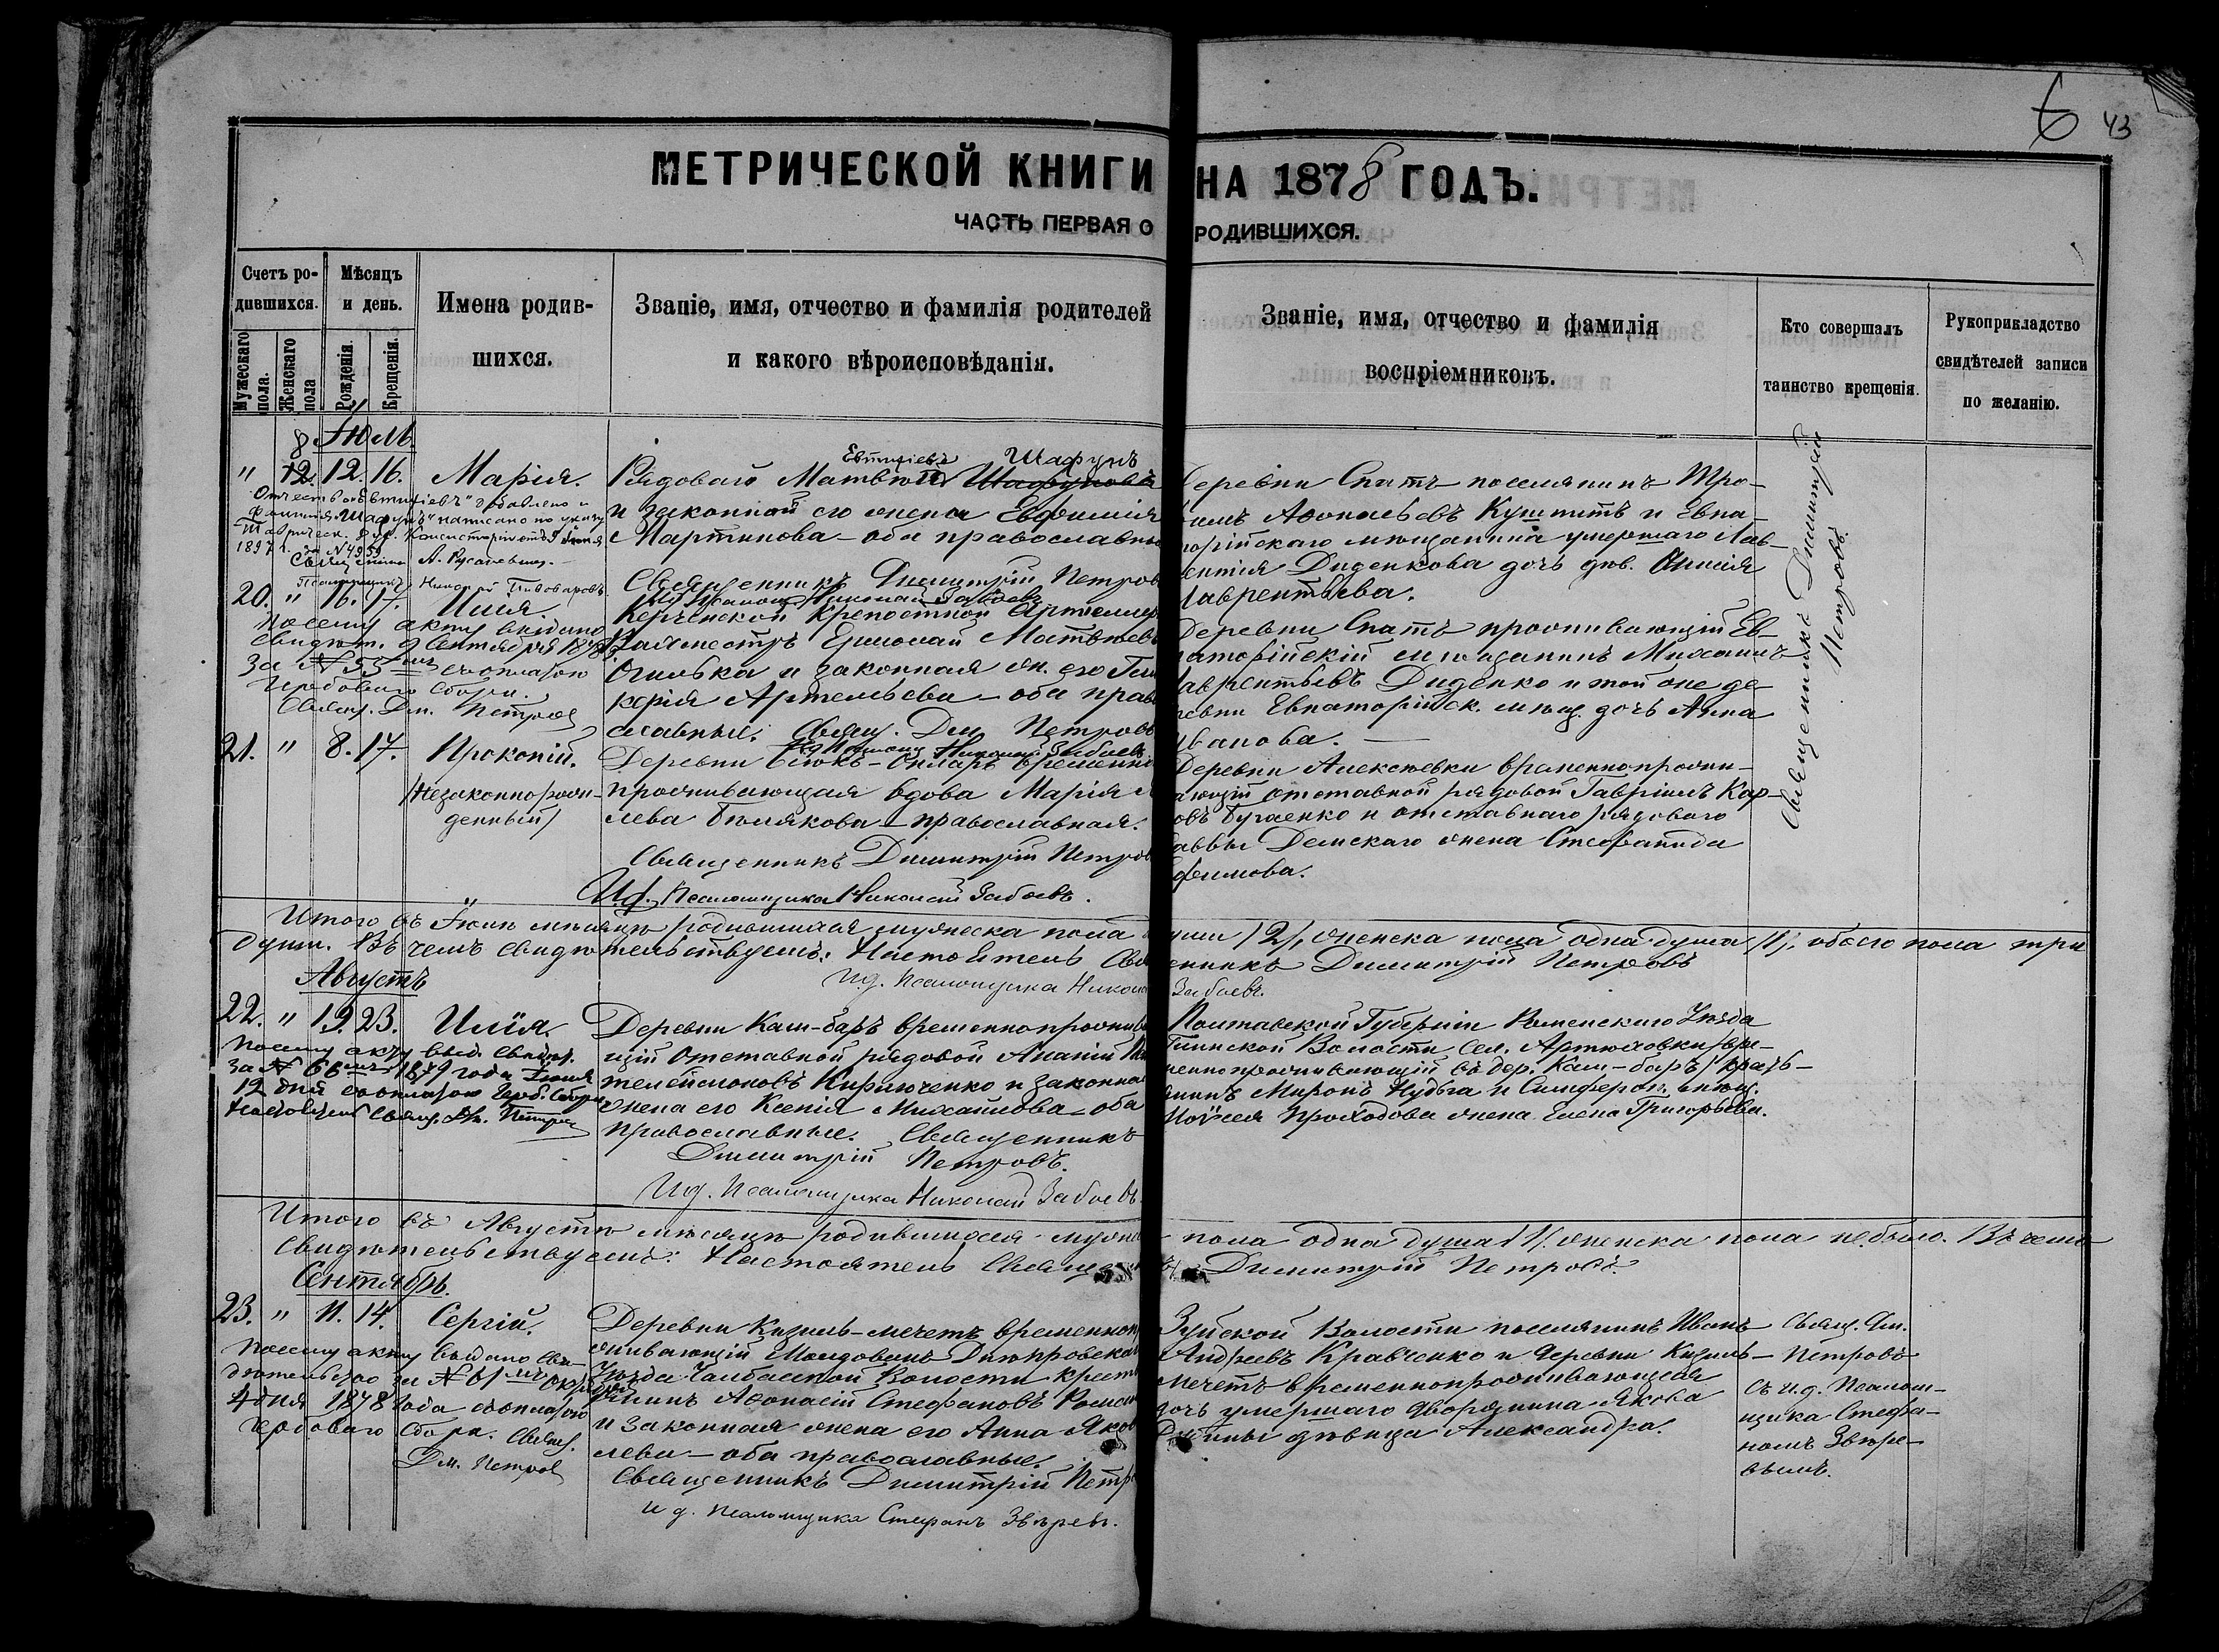 6 43
МЕТРИЧЕСКОЙ КНИГИ НА 1878 ГОДЪ.
ЧАСТЬ ПЕРВАЯ О РОДИВШИХСЯ.
Счетъ ро-
дившихся.
Мужескаго пола.
Женскаго пола
Мѣсяцъ
и день.
Рожденія.
Крещенія.
Имена родив-
шихся.
Званіе, имя, отчество и фамилія родителей
и какого вѣроисповѣданія.
Званіе, имя, отчество и фамилія
воспріемниковъ.
Кто совершалъ
таинство крещенія.
Рукоприкладство
свидѣтелей записи
по желанію.
Іюль
8
" 12. 12. 16. Марія.
Отчество „Евтихіевъ" добавлено и
фамилія „Шафунъ" написано по указу
Тавричeск. Дух. Консисторіи отъ
1897 г. за № 4959
Священникъ А.
Псаломщикъ Пивоваровъ
Евтихіевъ Шафунъ
Рядовой Матвѣй Шафуновъ
и законной его жены Евфимія
Мартинова – оба православны
Священникъ Димитрій Петров
Николай Забоевъ
Деревни Спатъ поселянинъ Тро-
Аѳонасьевъ Куштитъ и Евпа-
торійскаго мѣщанина умершаго Лав-
ентія Диденкова дочь дѣв.
Лаврентьева.
Священникъ Димитрій
Петровъ.
20. " 16. 17. Илія.
По сему акту выдано
Свидѣт. 9 Сентября 1878
за № 53 съ оплатою
Гербоваго сбора.
Свящ. Дм. Петров
Керченской Крепостной Артиллер
Вахмистръ Ермолай Матвѣев
Огилька и законная ж. его Гли
керія Артемьева – оба право
славные. Свящ. Дим Петровъ
Псаломщ. Николай Забоевъ
Деревни Спатъ проживающій Ев-
паторійскій мѣщанинъ Михаилъ
Лаврентьевъ Диденко и той же де-
ревни Евпаторійск. мѣщ. дочь Анна
Иванова.
21. " 8. 17. Прокопій.
/Незаконнорож-
денный/
Деревни Біюкъ-Онларъ временно
проживающая вдова Марія
лева Бѣлякова – православная.
Священникъ Димитрій Петров
И.д. Псаломщика Николай Забоевъ.
Деревни Алексѣевки временнопрожи-
вающій отставной рядовой Гавріилъ Кар-
повъ Бугаенко и отставнаго рядоваго
Саввы Демскаго жена Стефанида
Ефимова.
Итого въ Іюлѣ мѣсяцѣ родившихся мужеска пола души /2/, женска пола одна душа /1/, обоего пола три
души. Въ чемъ свидѣтельствуемъ: Настоятель Священникъ Димитрій Петровъ
И.д. Псаломщика Николай Забоевъ.
Августъ
22. " 19. 23. Илія.
По сему акту выд. Свидѣт.
за № 66 1879 года Іюня
12 дня съ оплатою Герб. Сбора
Настоятель Свящ. Дм. Петров
Деревни Каш-баръ временнопрожива
щій Отставной рядовой Ананій
телеймоновъ Кириченко и законная
жена его Ксенія Михайлова – оба
православные. Священникъ
Димитрій Петровъ.
И.д. Псаломщика Николай Забоевъ.
Полтавской Губерніи Роменскаго Уѣзда
Глинской Волости Сел. Артюховки /вре-
меннопроживающій въ дер. Каш-баръ/ кресть-
янинъ Миронъ Нудьга и Симфероп. мѣщ.
Моѵсея Проходова жена Елена Григорьева.
Итого въ Августѣ мѣсяцѣ родившихся мужеска пола одна душа /1/. женска пола не было. Въ чемъ
Свидѣтельствуемъ: Настоятель Священникъ Димитрій Петровъ.
Сентябрь
23. " 11. 14. Сергій.
По сему акту выдано Сви-
дѣтельство за № 61 Октября
4 дня 1878 года съ оплатою
гербоваго сбора. Свящ.
Дм. Петров
Деревни Кизилъ-мечетъ временнопр
живающій Молдованъ Днѣпровскаго
Уѣзда Чалбасской Волости кресть
янинъ Аѳонасій Стефановъ Роман
и законная жена его Анна Яков
лева – оба православные.
Священникъ Димитрій Петр
И д. псаломщика Стефанъ Звѣревъ.
Зуйской Волости поселянинъ Иванъ
Андреевъ Кравченко и Деревни Кизилъ-
мечетъ временнопроживающая
дочь умершаго дворянина Якова
дѣвица Александра.
Свящ. Дм.
Петровъ
съ и.д. Псалом-
щика Стефа-
номъ Звѣре-
вымъ.